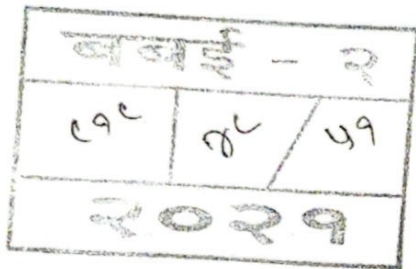 बबई - २
८१८ ४८ / ५१
२०२१